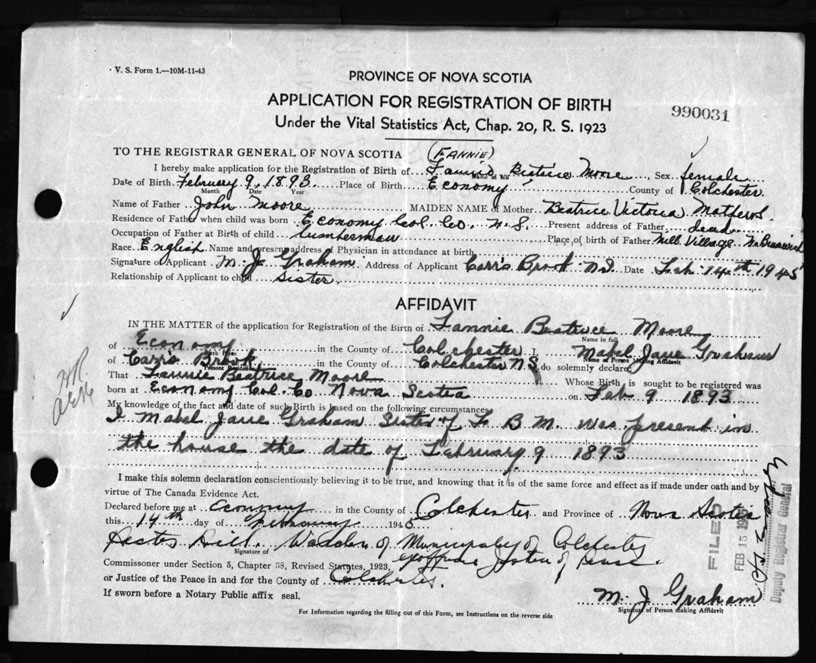 V. S. Form 1.—10M-11-43
PROVINCE OF NOVA SCOTIA
APPLICATION FOR REGISTRATION OF BIRTH
990031
Under the Vital Statistics Act, Chap. 20, R. S. 1923
TO THE REGISTRAR GENERAL OF NOVA SCOTIA (FANNIE)
I hereby make application for the Registration of Birth of Fannie Beatrice Moore Sex female
Date of Birth February 9, 1893 Place of Birth Economy County of Colchester
Month Day Year
Name of Father John Moore MAIDEN NAME of Mother Beatrice Victoria Mathews
Residence of Father when child was born Economy Col. Co. N S. Present address of Father dead
Occupation of Father at Birth of child lumberman Place of birth of Father Mill Village
Race English Name and present address of Physician in attendance at birth
Signature of Applicant M. J Graham Address of Applicant Carr's Brook N.S Date Feb. 14th 1945
Relationship of Applicant to child sister
AFFIDAVIT
IN THE MATTER of the application for Registration of the Birth of Fannie Beatrice Moore
Name in full
of Economy in the County of Colchester Mabel Jane Graham
Name of Person Making Affidavit
of Carr's Brook in the County of Colchester N S. do solemnly declare
Present Residence
That Fannie Beatrice Moore Whose Birth is sought to be registered was
born at Economy Col. Co. Nova Scotia on Feb 9 1893
My knowledge of the fact and date of such Birth is based on the following circumstances
I Mabel Jane Graham Sister of F. B M. was present in
the house the date of February 9 1893
I make this solemn declaration conscientiously believing it to be true, and knowing that it is of the same force and effect as if made under oath and by
virtue of The Canada Evidence Act.
Declared before me at Economy in the County of Colchester and Province of Nova Scotia
this 14th day of February 1945
Hill Warden of Municipality of Colchester
Signature of
Commissioner under Section 5, Chapter 38, Revised Statutes, 1923, exofficio Justice of Peace
or Justice of the Peace in and for the County of Colchester
If sworn before a Notary Public affix seal.
M. J Graham
Signature of Person Making Affidavit
For Information regarding the filling out of this Form, see Instructions on the reverse side
FILED
FEB 15
Deputy Registrar General